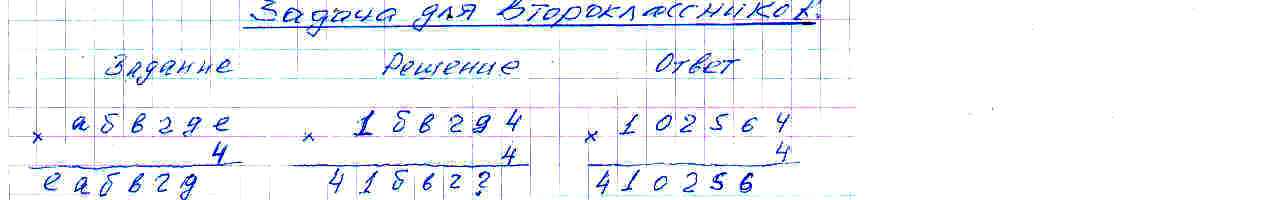 Задача для второклассников.
Задание Решение Ответ
× а б в г д е × 1 б в г д 4 × 1 0 2 5 6 4
4 4 4
е а б в г д 4 1 б в г ? 4 1 0 2 5 6